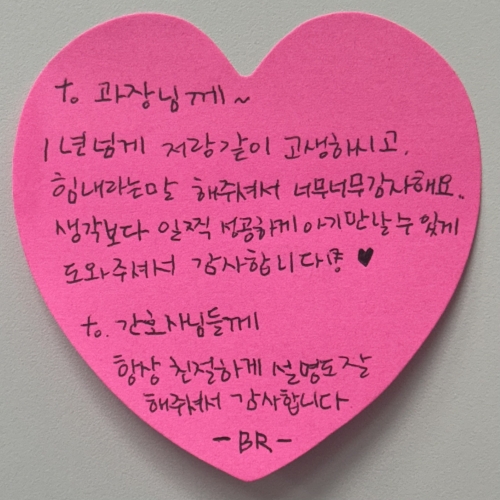 to 과장님께~
1년넘게 저랑같이 고생하시고,
힘내라는말 해주셔서 너무너무감사해요.
생각보다 일찍 성공하게 아기만날수있게
도와주셔서 감사합니다 ♥
to. 간호사님들께
항상 친절하게 설명도잘
해주셔서 감사합니다.
-BR-